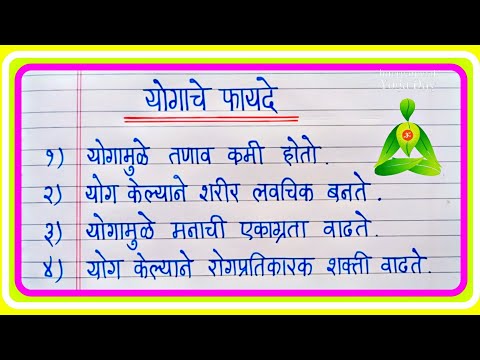 योगाचे फायदे
१) योगामुळे तणाव कमी होतो.
२) योग केल्याने शरीर लवचिक बनते.
३) योगामुळे मनाची एकाग्रता वाढते.
४) योग केल्याने रोगप्रतिकारक शक्ती वाढते.
ॐ